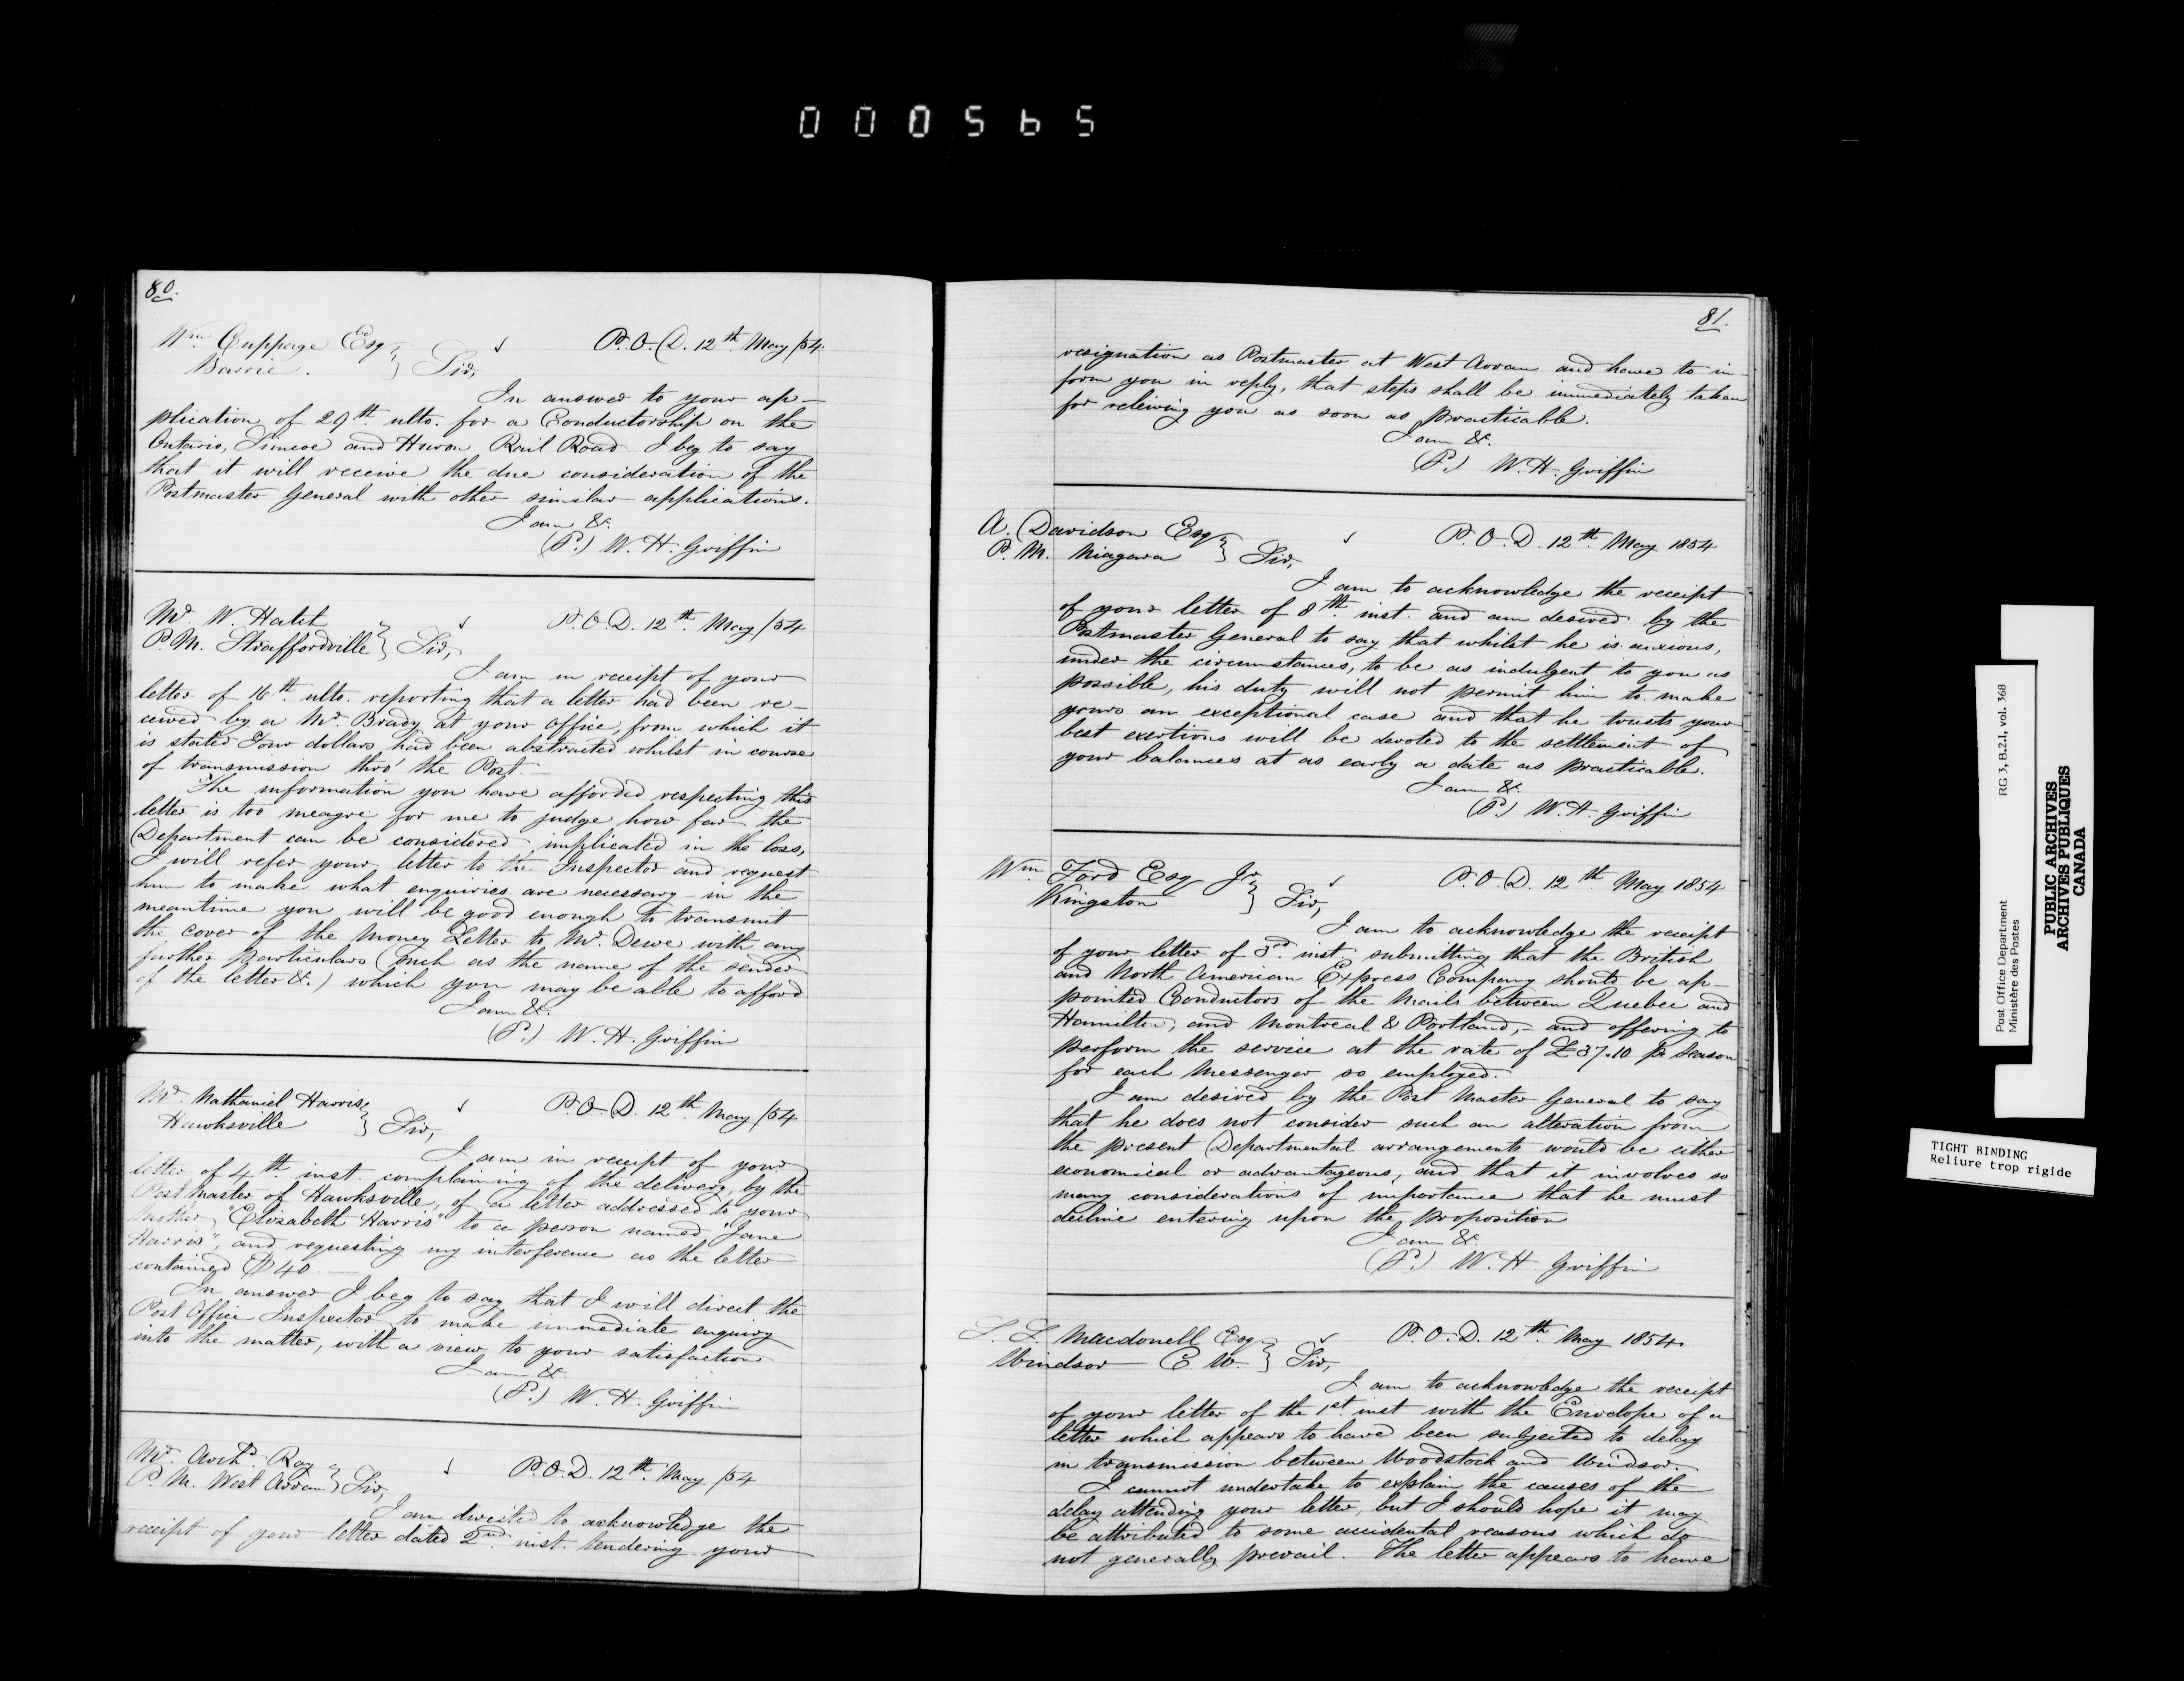 000565
80.
Wm Cuppage Esq
Barrie. } Sir,
P.O.D. 12th May /54
In answer to your ap-
plication of 29th ulto. for a Conductorship on the
Ontario, Simcoe and Huron Rail Road I beg to say
that it will receive the due consideration of the
Postmaster General with other similar applications.
I am &c.
(P.) W. H. Griffin
Mr. W. Hatch
P.M. Straffordville } Sir,
P.O.D. 12th May /54
I am in receipt of your
letter of 16th ulto. reporting that a letter had been re-
ceived by a Mr. Brady at your office, from which it
is stated Four dollars had been abstracted whilst in course
of transmission thro' the Post.
The information you have afforded respecting this
letter is too meagre for me to judge how far the
Department can be considered implicated in the loss,
I will refer your letter to the Inspector and request
him to make what enquiries are necessary - in the
meantime you will be good enough to transmit
the cover of the Money Letter to Mr. Dewe with any
further particulars (such as the name of the sender
of the letter &c.) which you may be able to afford
I am &c.
(P.) W. H. Griffin
Mr. Nathaniel Harris
Hawksville } Sir,
P.O.D. 12th May /54
I am in receipt of your
letter of 4th inst. complaining of the delivery, by the
Post Master of Hawksville, of a letter addressed to your
Mother, "Elizabeth Harris" to a person named "Jane
Harris", and requesting my interference as the letter
contained $40.
In answer I beg to say that I will direct the
Post Office Inspector to make immediate enquiry
into the matter, with a view to your satisfaction
I am &c.
(P.) W. H. Griffin
Mr. Archd. Roy
P.M. West Arran } Sir,
P.O.D. 12th May /54
I am directed to acknowledge the
receipt of your letter dated 2nd inst. tendering your
81.
resignation as Postmaster at West Arran and have to in-
form you in reply, that steps shall be immediately taken
for relieving you as soon as practicable.
I am &c.
(P.) W. H. Griffin
A. Davidson Esq
P.M. Niagara } Sir,
P.O.D. 12th May 1854
I am to acknowledge the receipt
of your letter of 8th inst. and am desired by the
Postmaster General to say that whilst he is anxious,
under the circumstances, to be as indulgent to you as
possible, his duty will not permit him to make
yours an exceptional case and that he trusts your
best exertions will be devoted to the settlement of
your balances at as early a date as practicable.
I am &c.
(P.) W. H. Griffin
Wm Ford Esq Jr.
Kingston } Sir,
P.O.D. 12th May 1854
I am to acknowledge the receipt
of your letter of 3rd inst. submitting that the British
and North American Express Company should be ap-
pointed Conductors of the Mails between Quebec and
Hamilton, and Montreal & Portland, - and offering to
perform the service at the rate of £37.10 pr season
for each Messenger so employed.
I am desired by the Post Master General to say
that he does not consider such an alteration from
the present Departmental arrangements would be either
economical or advantageous, and that it involves so
many considerations of importance that he must
decline entering upon the proposition
I am &c.
(P.) W. H. Griffin
Macdonell Esq
Windsor C. W. } Sir,
P.O.D. 12th May 1854.
I am to acknowledge the receipt
of your letter of the 1st inst with the Envelope of a
letter which appears to have been subjected to delay
in transmission between Woodstock and Windsor.
I cannot undertake to explain the causes of the
delay attending your letter, but I should hope it may
be attributed to some accidental reasons which do
not generally prevail. The letter appears to have
RG 3, B.2.1, vol. 368
Post Office Department
Ministère des Postes
PUBLIC ARCHIVES
ARCHIVES PUBLIQUES
CANADA
TIGHT BINDING
Reliure trop rigide